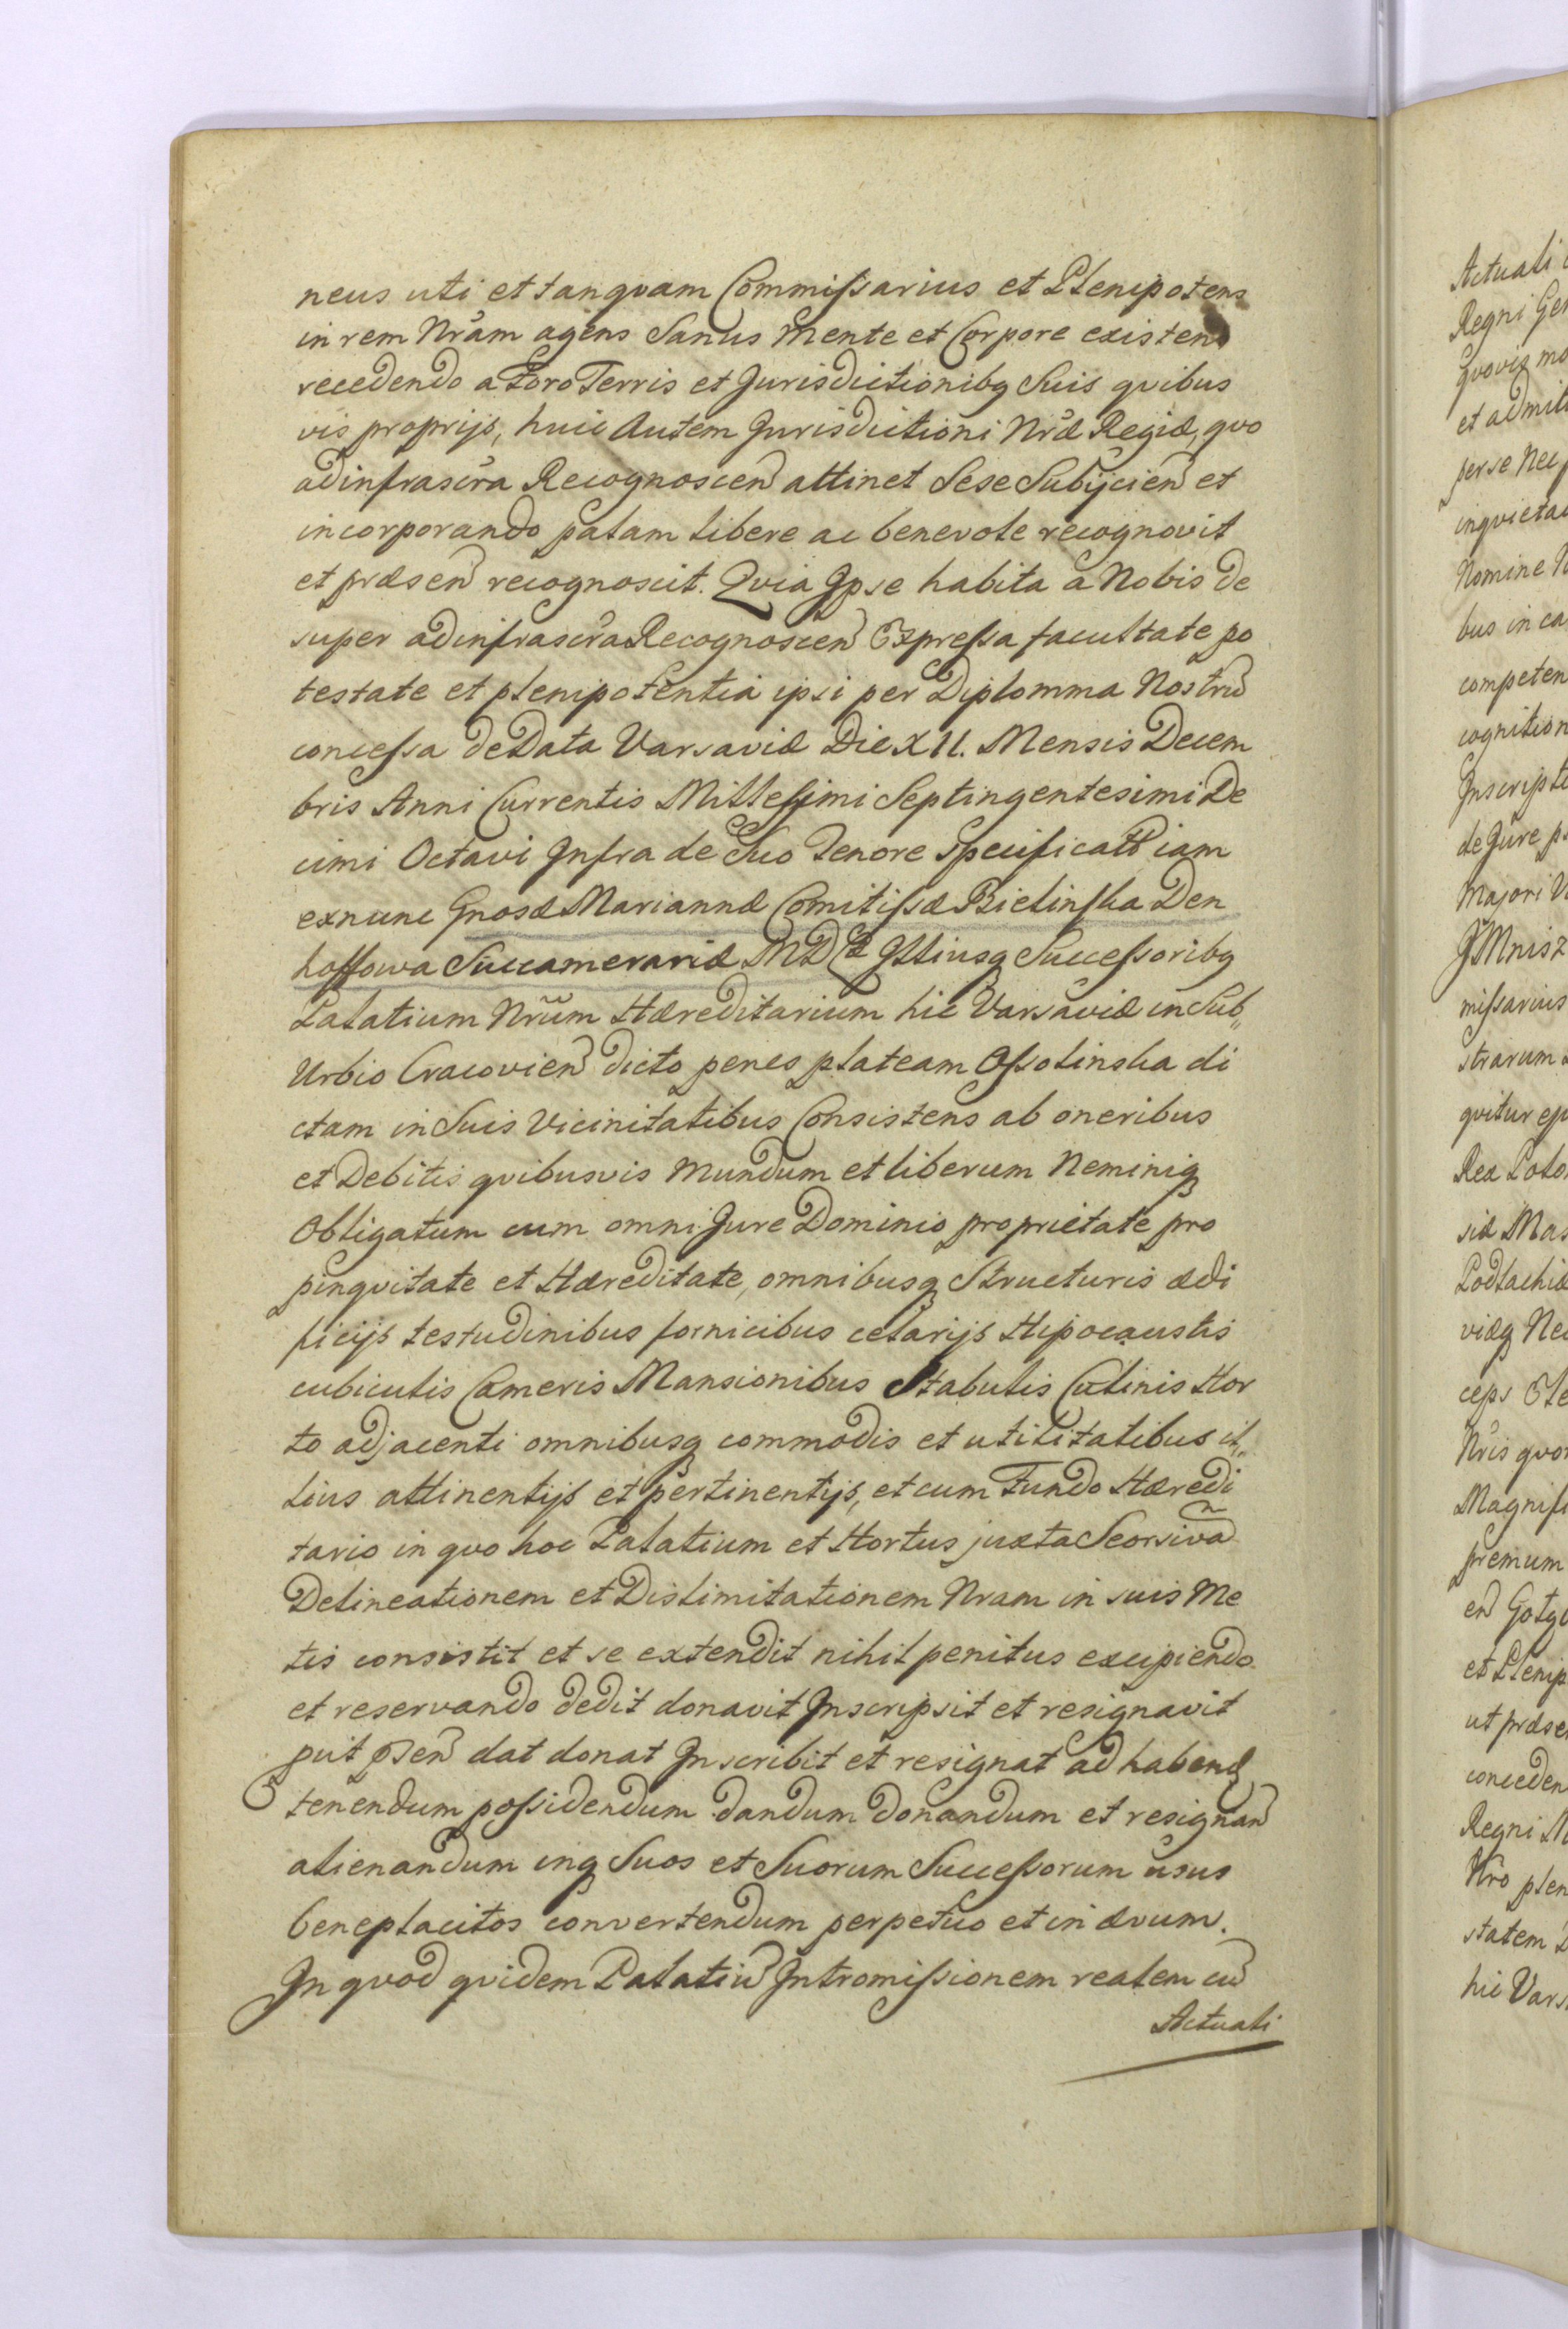 neus uti et tanqvam Commissarius et Plenipotens
in rem Nrãm agens Sanus Mente et Corpore existens
recedendo a Foro Terris et Jurisdictionibq Suis qvibus
vis proprijs, huic Autem Jurisdictioni Nræ Regiæ, qvo
ad infrascra Recognoscen attinet Sese Subijcien et
incorporando palam libere ac benevole recognovit
et præsen recognoscit. Qvia Ipse habita a Nobis de
super ad infrascra Recognoscen Expressa facultate po
testate et plenipotentia ipsi per Diplomma Nostrũ
concessa de Data Varsaviæ Die XII. Mensis Decem
bris Anni Currentis Millesimi Septingentesimi De
cimi Octavi Infra de Suo Tenore Specificatt iam
exnunc Gnosæ Mariannæ Comitissæ Bielinska Den
hoffowa Succamerariæ MDL Illiusq Successoribq
Palatium Nrũm Hæreditarium hic Varsaviæ in Sub„
Urbio Cracovien dicto penes plateam Ossolinska di
ctam in Suis Vicinitatibus Consistens ab oneribus
et Debitis qvibusvis Mundum et liberum Neminiq
Obligatum cum omni Jure Dominio proprietate pro
pinqvitate et Hæreditate, omnibusq Structuris ædi
ficijs testudinibus fornicibus celarijs Hipocaustis
cubiculis Cameris Mansionibus Stabulis Culinis Hor
to adjacenti omnibusq commodis et utilitatibus il„
lius attinentijs et pertinentijs, et cum Fundo Hæredi
tario in qvo hoc Palatium et Hortus juxta Seorsivã
Delineationem et Dislimitationem Nram in suis Me
tis consistit et se extendit nihil penitus excipiendo
et reservando dedit donavit Inscripsit et resignavit
put psen dat donat Inscribit et resignat ad habend
tenendum possidendum dandum donandum et resignan
alienandum inq Suos et Suorum Successorum usus
beneplacitos convertendum perpetuo et in ævum.
In qvod qvidem Palatiũ Intromissionem realem cũ
Actuali
Actuali
Regni Gen
qvovis mo
et admit
per se Nec
inqvieta
Nomine
bus in ca
competen
cognition
Inscripti
de Jure
Majori
J Mnisz
missarius
strarum
qvitur
Rex Polo
siæ Mas
Podlachiæ
viæq Nec
ceps Ele
Nris qvo
Magnifi
premum
en
et Plenip
ut præse
conceden
Regni
Nro plen
statem
hic Vars